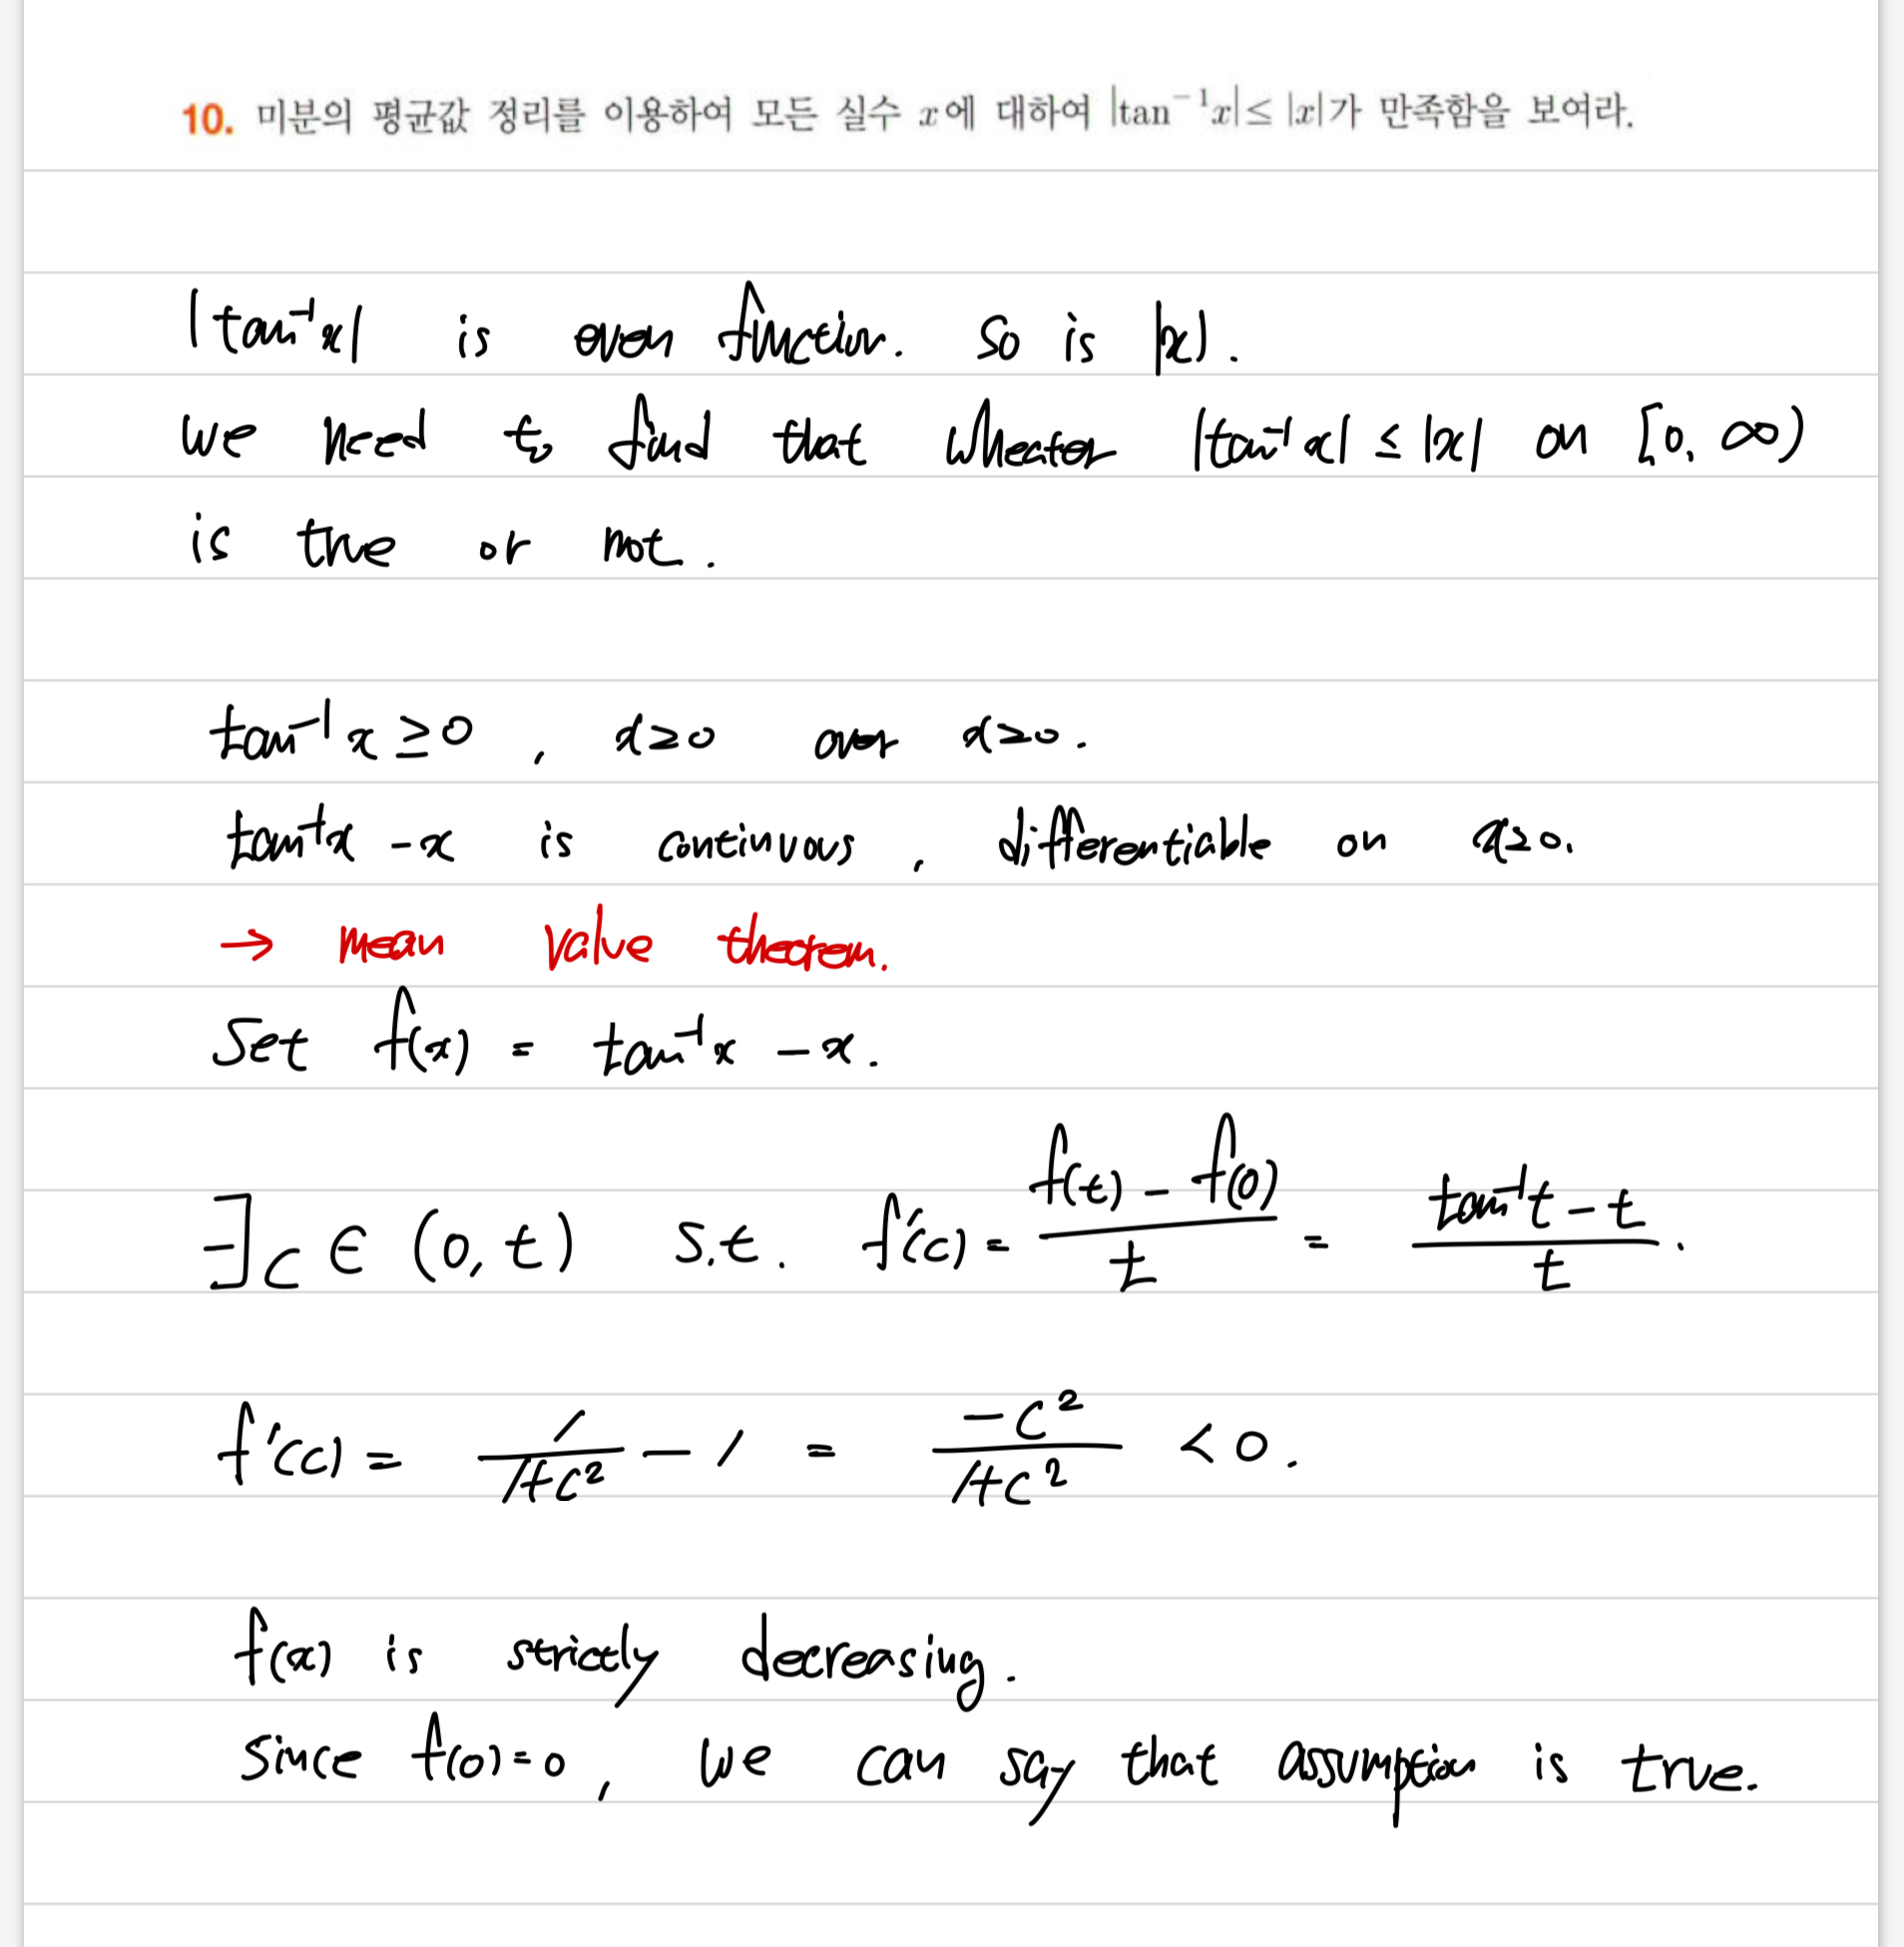 10. 미분의 평균값 정리를 이용하여 모든 실수 x에 대하여 |tan⁻¹x| ≤ |x|가 만족함을 보여라.
|tan⁻¹x| is even function. So is |x|.
we need to find that wheater |tan⁻¹x| ≤ |x| on [0, ∞)
is true or not.
tan⁻¹x ≥ 0, x≥0 over x≥0.
tan⁻¹x - x is continuous, differentiable on x≥0.
→ mean value theorem.
Set f(x) = tan⁻¹x - x.
∃c ∈ (0, t) s.t. f'(c) = (f(t) - f(0))/t = (tan⁻¹t - t)/t.
f'(c) = 1/(1+c²) - 1 = -c²/(1+c²) < 0.
f(x) is strictly decreasing.
since f(0)=0, we can say that assumption is true.